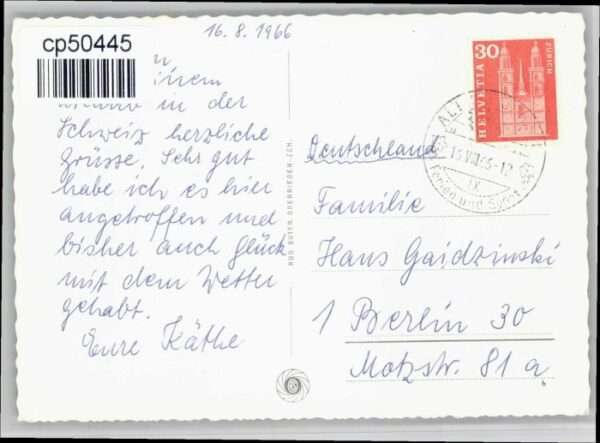 cp50445
16.8.1966
in der
Schweiz herzliche
Grüsse. Sehr gut
habe ich es hier
angetroffen und
bisher auch Glück
mit dem Wetter
gehabt.
Eure Käthe
30
HELVETIA
ZÜRICH
Ferien und Sport
Deutschland
Familie
Hans Gaidzinski
1 Berlin 30
Motzstr. 81 a